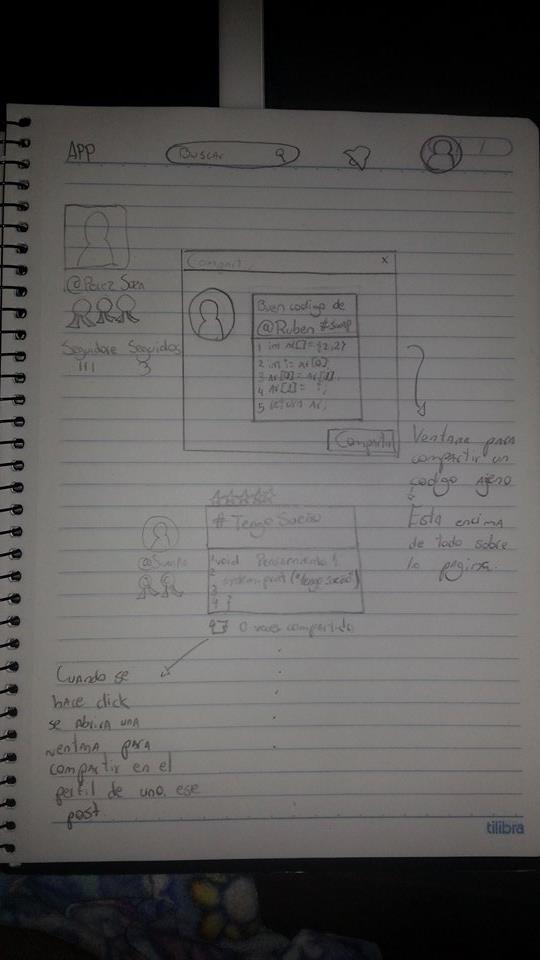 APP
Buscar
@Perez Sara
Seguidore Seguidos
111 3
Compart
x
Buen codigo de
@Ruben #swap
1 int ar[]={1,2}
2 int i= ar[0];
3 ar[0]= ar[1];
4 ar[1]= i;
5 return ar;
Compartir
Ventana para
compartir un
codigo ajeno
Esta encima
de todo sobre
la pagina.
#TengoSueño
@Sueño
1 void Pensamiento{
2 system.print("tengo sueño")
3
4 }
0 veces compartido
Cuando se
hace click
se abrira una
ventana para
compartir en el
perfil de uno, ese
post
tilibra